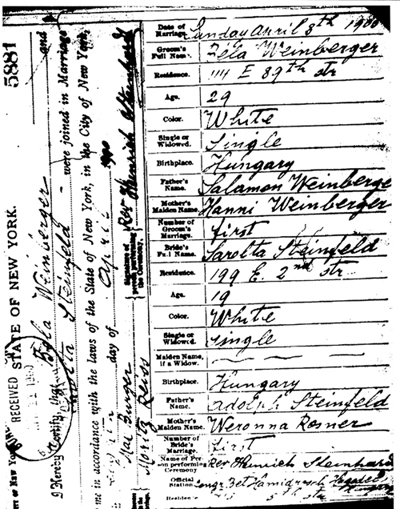 5881
STATE OF NEW YORK.
RECEIVED
I Hereby Certify, that Béla Weinberger and
Sarolta Steinfeld were joined in Marriage
me in accordance with the laws of the State of New York, in the City of New York,
day of April 1900
Signature of person performing the Ceremony,
Rev. Heinrich
Max Burger
Moritz Reiss
Date of Marriage, Sunday April 8th 1900
Groom's Full Name, Béla Weinberger
Residence, 111 E 89th str
Age, 29
Color, White
Single or Widowed, Single
Birthplace, Hungary
Father's Name, Salamon Weinberger
Mother's Maiden Name, Hanni Weinberger
Number of Groom's Marriage, first
Bride's Full Name, Sarolta Steinfeld
Residence, 199 E. 2nd str
Age, 19
Color, White
Single or Widowed, Single
Maiden Name, if a Widow,
Birthplace, Hungary
Father's Name, Adolph Steinfeld
Mother's Maiden Name, Weronna Rosner
Number of Bride's Marriage, first
Name of Person performing Ceremony Rev Heinrich Steinhard
Official Station Congr. Bet Hamidrasch
Residence str